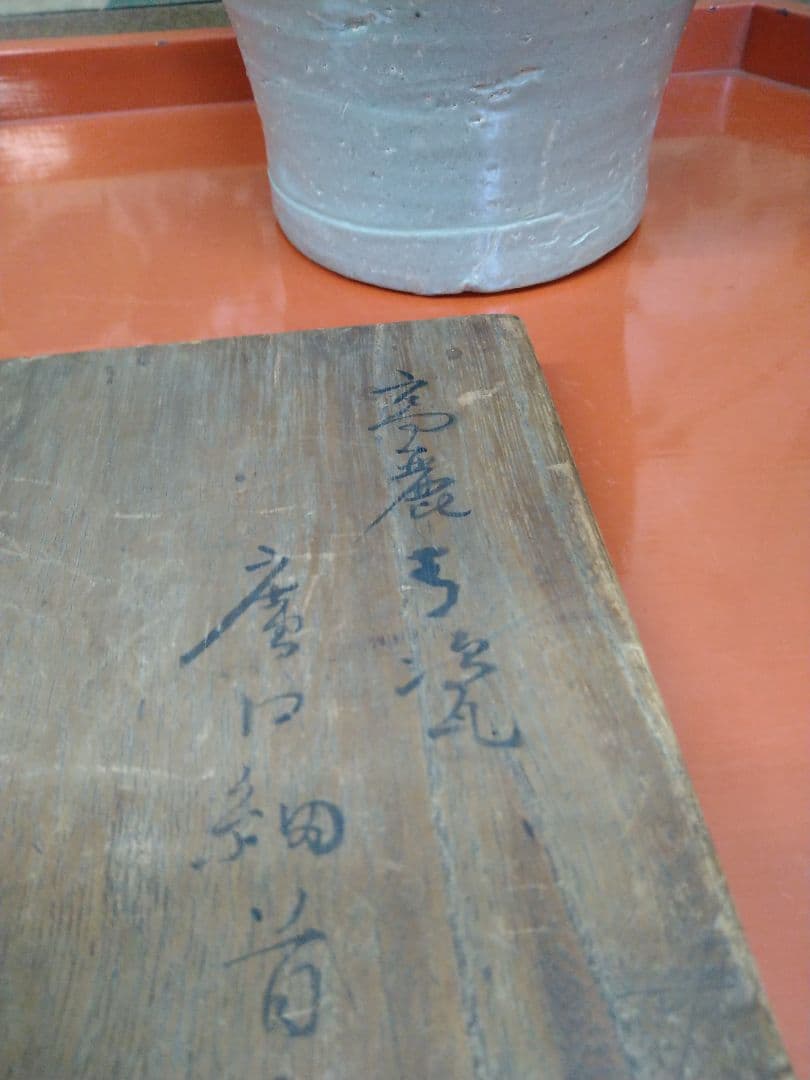 高麗青瓷
廣口細首